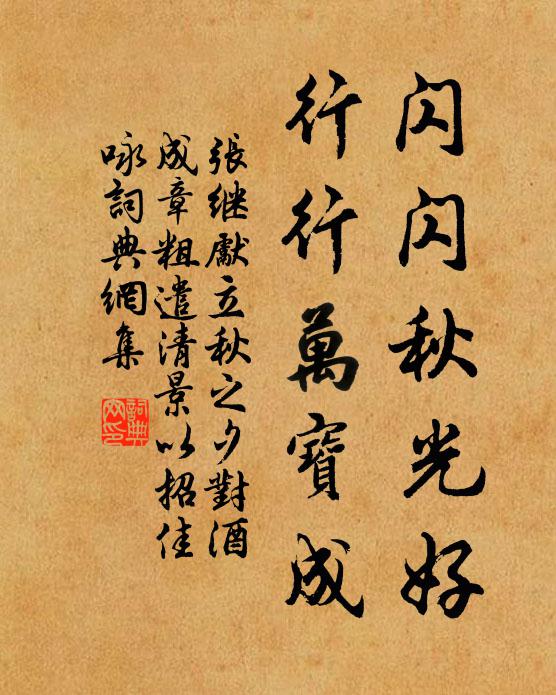 閃閃秋光好
行行萬寶成
張继獻立秋之夕對酒
成章粗遣清景以招佳
咏詞典網集
詞典
网印